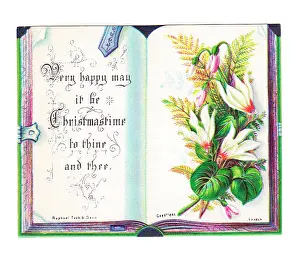 Very happy may
it be
Christmastime
to thine
and thee.
Raphael Tuck & Sons
Copyright